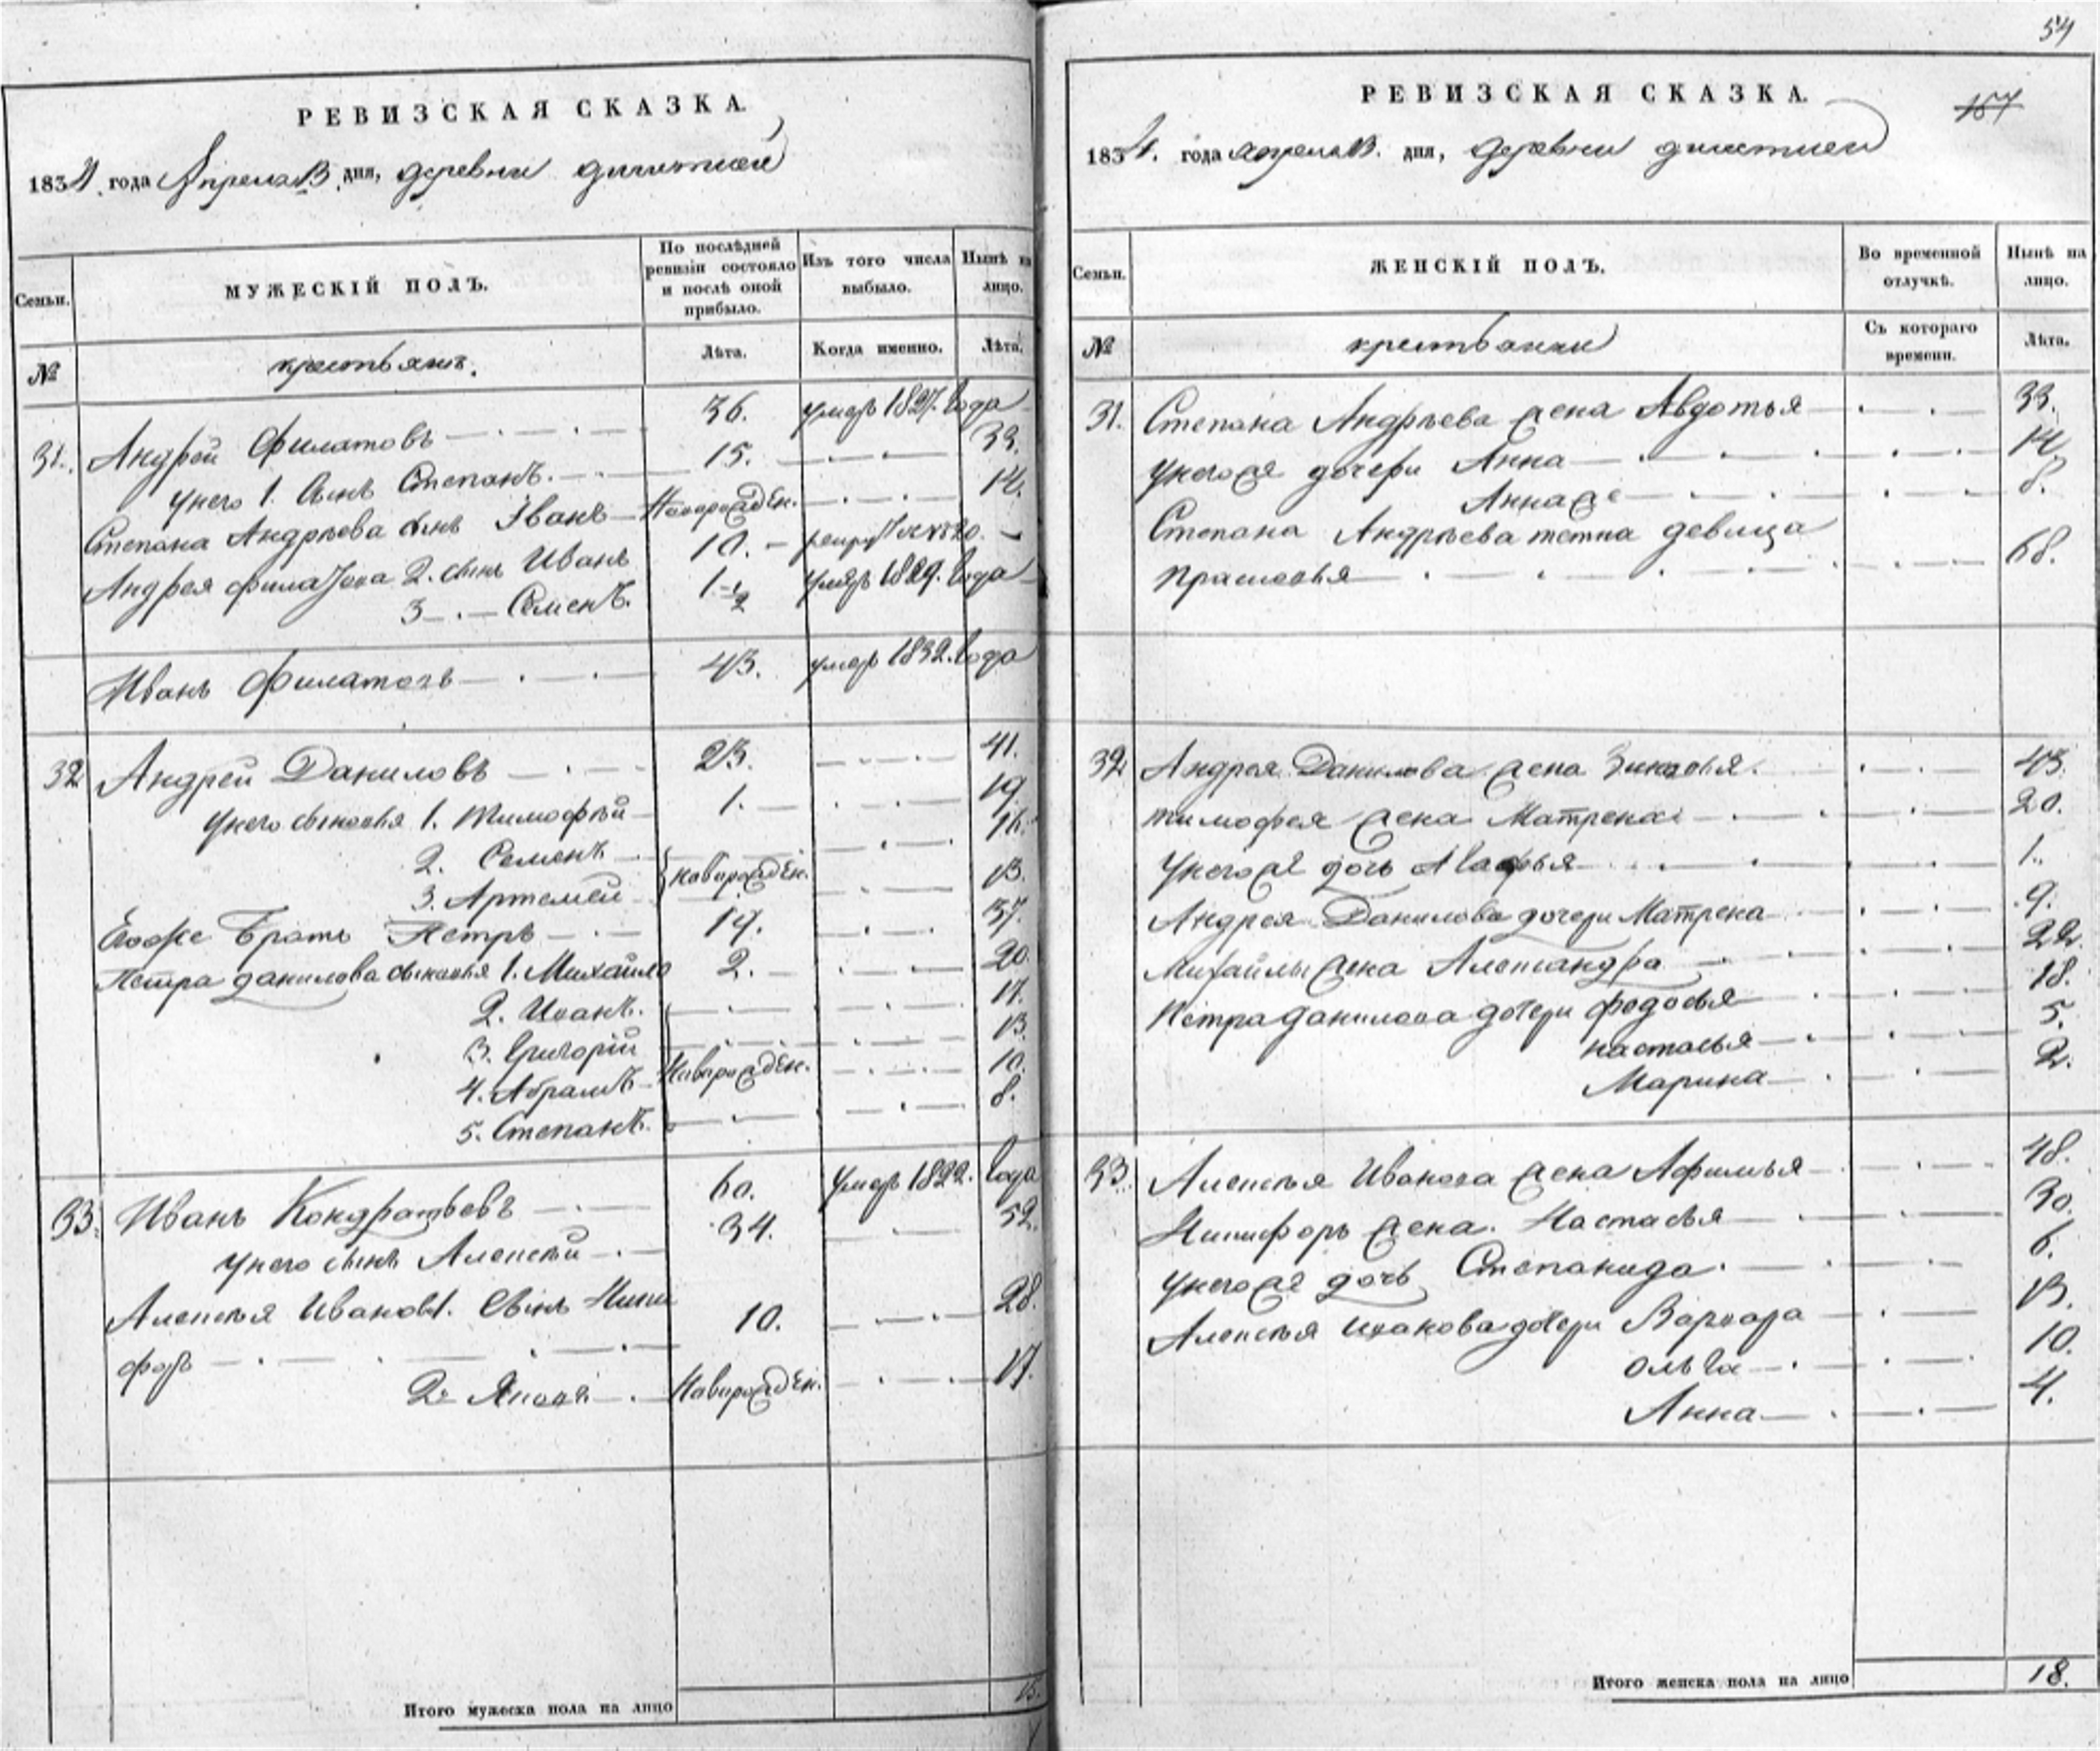 54
РЕВИЗСКАЯ СКАЗКА.
1834. года Апреля 13. дня, деревни
Семьи.
МУЖЕСКІЙ ПОЛЪ.
По послѣдней ревизіи состояло и послѣ оной прибыло.
Изъ того числа выбыло.
Нынѣ на лицо.
№
крестьянъ.
Лѣта.
Когда именно.
Лѣта.
31. Андрей Филатовъ 36. умеръ 1827. года
унего 1. сынъ Степанъ. 15. 33.
Степана Андрѣева сынъ Іванъ Новорожден. 14.
Андрея Филатова 2. сынъ Иванъ 10.
3 Семенъ. 1 1/2 умеръ 1829. года
Иванъ Филатовъ 43. умеръ 1832. года
32 Андрей Даниловъ 23. 41.
Унего сыновья 1. Тимофѣй 1. 19.
2. Семенъ 16.
3. Артемей новорожден. 13.
Егоже Братъ Петръ 19. 37.
Петра данилова сыновья 1. Михайло 2. 20.
2. Иванъ. 17.
3. Григорій 13.
4. Абрамъ Новорожден. 10.
5. Степанъ. 8.
33. Иванъ Кондратьевъ 60. умеръ 1822. года
Унего сынъ Алексѣй 34. 52.
Алексѣя Иванов 1. Сынъ Ники
форъ 10. 28.
2. Яковъ Новорожден. 17.
Итого мужеска пола на лицо 15.
РЕВИЗСКАЯ СКАЗКА.
157
1834. года апреля 13. дня, деревни
Семьи.
ЖЕНСКІЙ ПОЛЪ.
Во временной отлучкѣ.
Нынѣ на лицо.
№
крестьянки
Съ котораго времени.
Лѣта.
31. Степана Андрѣева жена Авдотья 33.
Унегоже дочери Анна 14.
Анна же 8.
Степана Андрѣева тетка девица
Прасковья 68.
32 Андрея Данилова жена Зиновья. 43.
тимофея жена Матрена 20.
Унегоже дочь Агафья 1.
Андрея Данилова дочери Матрена 9.
Михайлы жена Александра 22.
Петра данилова дочери федосья 18.
настасья 5.
Марина 2.
33. Алексѣя Иванова жена Афимья 48.
Никифоръ жена. Настасья 30.
Унегоже дочь Степанида 6.
Алексѣя иванова дочери Варвара 13.
ольга 10.
Анна 4.
Итого женска пола на лицо 18.